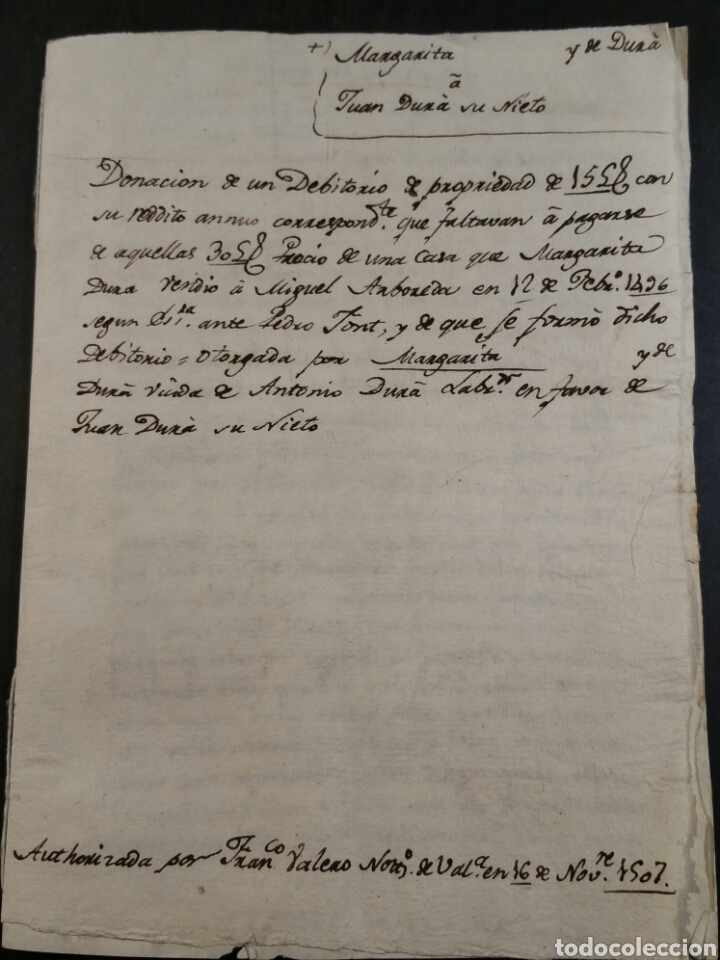 +) Margarita y de Durà
â
Juan Durà su Nieto
Donacion de un Debitorio de propriedad de 15 L& con
su reddito annuo correspond.te que faltavan â pagarse
de aquellas 30 L& Precio de una casa que Margarita
Dura vendio â Miguel Arboreda en 12 de Febr.o 1496
segun Es.ra ante Pedro Font, y de que se formò dicho
Debitorio = otorgada por Margarita y de
Durà viuda de Antonio Durà Labr.or en favor de
Juan Durà su Nieto
Authorizada por Fran.co Valero Not.o de Val.a en 16 de Nov.re 1507.
todocoleccion